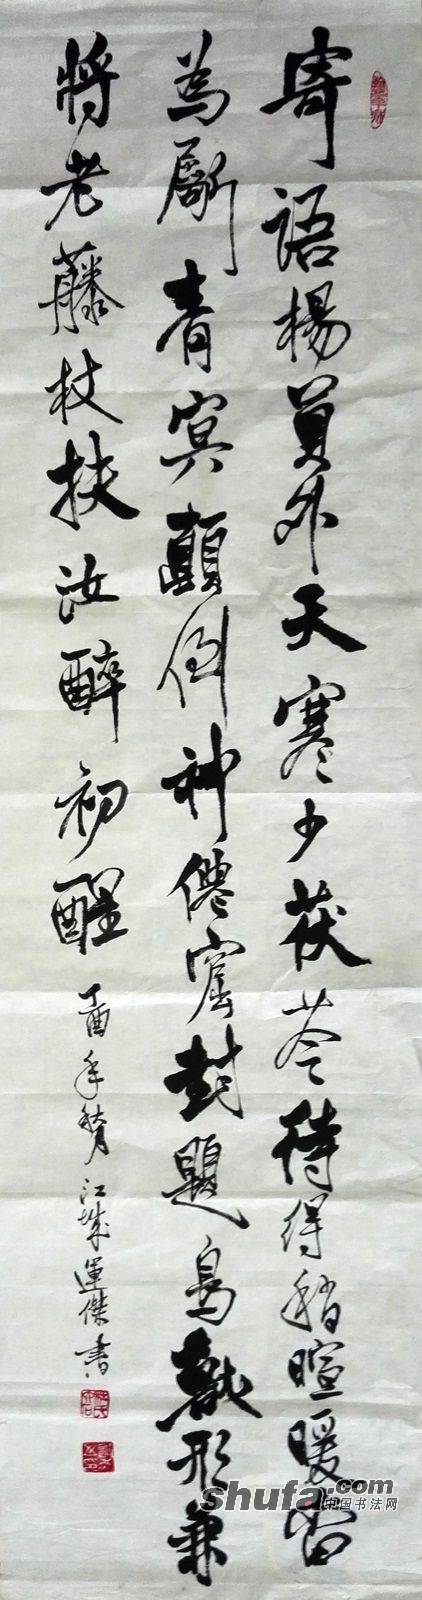 寄語楊員外天寒少茯苓待得稍暄暖當
為劚青冥顛倒神僊窟封題鳥獸形兼
將老藤杖扶汝醉初醒
丁酉年 江城運傑書
shufa.com
中国书法网